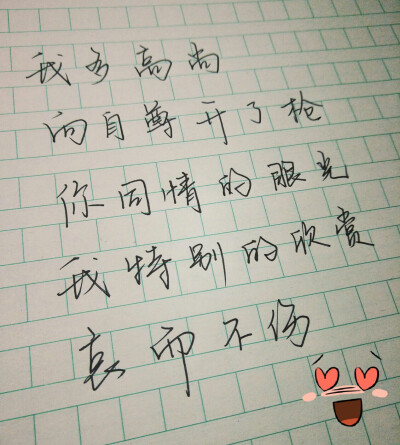 我多高尚
向自尊开了枪
你同情的眼光
我特别的欣赏
哀而不伤